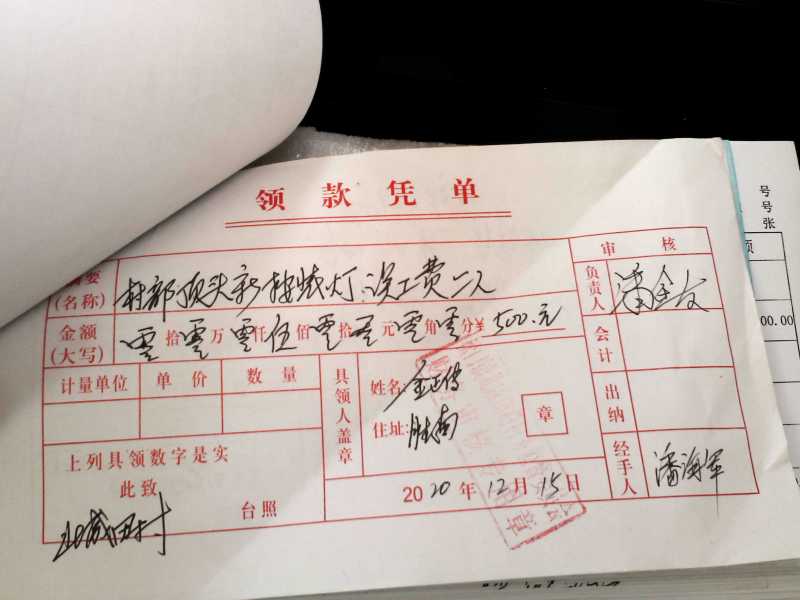 领款凭单
审核
摘要
(名称)
村部顶头新按装灯:误工费二人
负责人
金额
(大写)
零拾零万零仟伍佰零拾零元零角零分¥500.元
会计
计量单位 单价 数量
具领人盖章
姓名:
住址:胜南
章
出纳
上列具领数字是实
此致
台照
2020年12月15日
经手人
潘海军
号
号
张
项
00.00